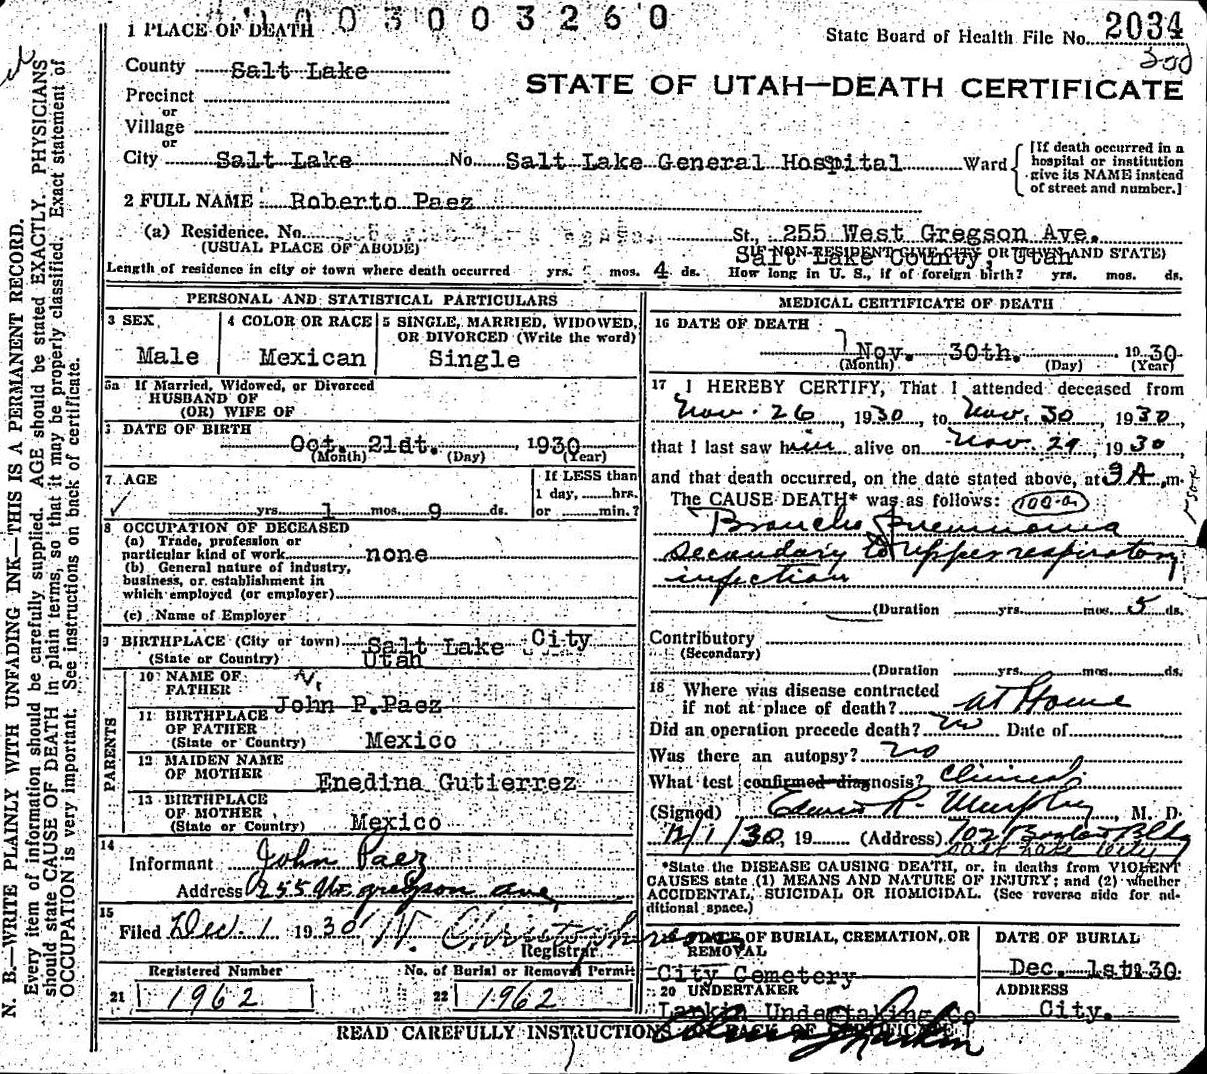 003003260
1 PLACE OF DEATH
State Board of Health File No. 2034
300
County Salt Lake
STATE OF UTAH—DEATH CERTIFICATE
Precinct
or
Village
or
City Salt Lake No. Salt Lake General Hospital Ward
[If death occurred in a
hospital or institution
give its NAME instead
of street and number.]
2 FULL NAME Roberto Paez
(a) Residence. No. St. 255 West Gregson Ave.
(USUAL PLACE OF ABODE) (IF NON-RESIDENT GIVE CITY OR TOWN AND STATE)
Salt Lake County, Utah
Length of residence in city or town where death occurred yrs. mos. 4 ds. How long in U. S., if of foreign birth? yrs. mos. ds.
PERSONAL AND STATISTICAL PARTICULARS
3 SEX
Male
4 COLOR OR RACE
Mexican
5 SINGLE, MARRIED, WIDOWED,
OR DIVORCED (Write the word)
Single
5a If Married, Widowed, or Divorced
HUSBAND OF
(OR) WIFE OF
DATE OF BIRTH
Oct. 21st. 1930
(Month) (Day) (Year)
7 AGE
yrs. 1 mos. 9 ds.
If LESS than
1 day, hrs.
or min.?
8 OCCUPATION OF DECEASED
(a) Trade, profession or
particular kind of work none
(b) General nature of industry,
business, or establishment in
which employed (or employer)
(c) Name of Employer
9 BIRTHPLACE (City or town) Salt Lake City
(State or Country) Utah
PARENTS
10 NAME OF
FATHER John P. Paez
11 BIRTHPLACE
OF FATHER
(State or Country) Mexico
12 MAIDEN NAME
OF MOTHER Enedina Gutierrez
13 BIRTHPLACE
OF MOTHER
(State or Country) Mexico
14
Informant John Paez
Address 255 W. Gregson Ave
15
Filed Dec. 1 1930 Registrar
Registered Number
21 1962
No. of Burial or Removal Permit
22 1962
MEDICAL CERTIFICATE OF DEATH
16 DATE OF DEATH
Nov. 30th. 1930
(Month) (Day) (Year)
17 I HEREBY CERTIFY, That I attended deceased from
Nov. 26, 1930, to Nov. 30, 1930,
that I last saw him alive on Nov. 29, 1930,
and that death occurred, on the date stated above, at 3 A.m.
The CAUSE DEATH* was as follows: 100-a
Broncho Pneumonia
secondary to upper respiratory
infection
(Duration yrs. mos. 5 ds.
Contributory
(Secondary)
(Duration yrs. mos. ds.
18 Where was disease contracted
if not at place of death? at Home
Did an operation precede death? no Date of
Was there an autopsy? no
What test confirmed diagnosis? Clinical
(Signed) Edwin R. Murphy, M. D.
12/1/30, 19 (Address) 702 Boston Bldg
Salt Lake City
*State the DISEASE CAUSING DEATH, or, in deaths from VIOLENT
CAUSES state (1) MEANS AND NATURE OF INJURY; and (2) whether
ACCIDENTAL, SUICIDAL OR HOMICIDAL. (See reverse side for ad-
ditional space.)
PLACE OF BURIAL, CREMATION, OR
REMOVAL
City Cemetery
DATE OF BURIAL
Dec. 1st 1930
20 UNDERTAKER
Larkin Undertaking Co
ADDRESS
City.
READ CAREFULLY INSTRUCTIONS ON BACK OF CERTIFICATE
N. B.—WRITE PLAINLY WITH UNFADING INK—THIS IS A PERMANENT RECORD.
Every item of information should be carefully supplied. AGE should be stated EXACTLY. PHYSICIANS
should state CAUSE OF DEATH in plain terms, so that it may be properly classified. Exact statement of
OCCUPATION is very important. See instructions on back of certificate.